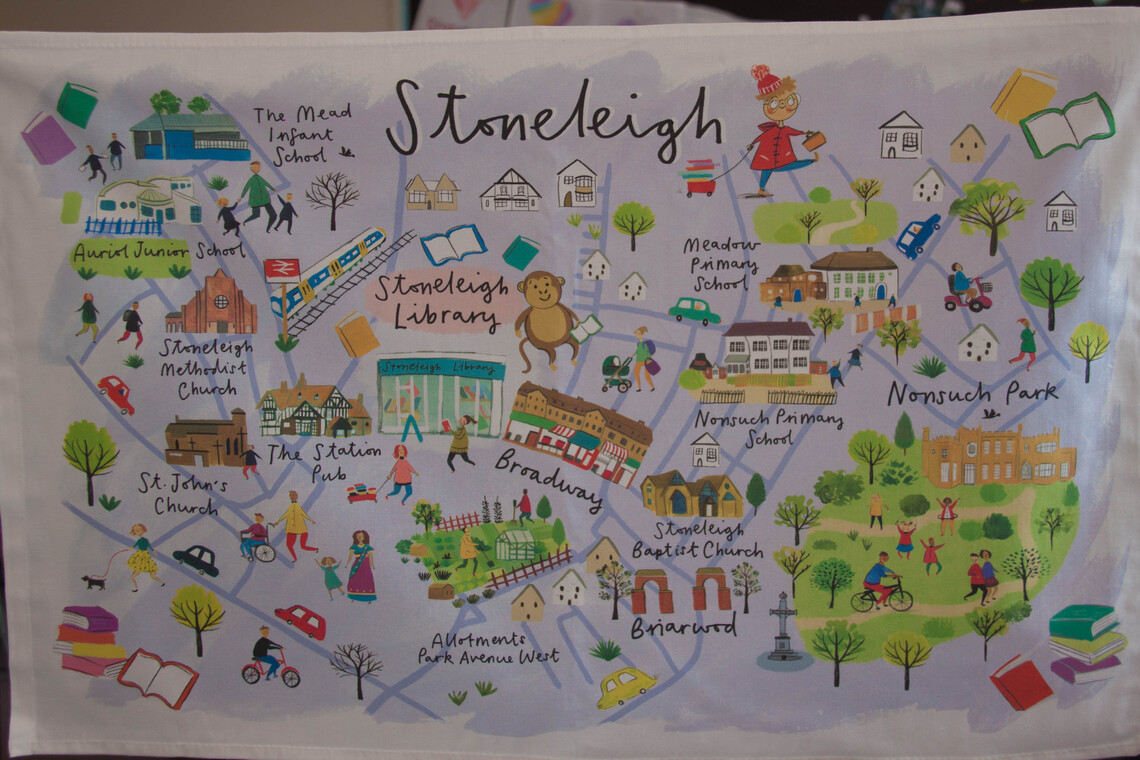 Stoneleigh
The Mead
Infant
School
Auriol Junior School
Stoneleigh
Library
Meadow
Primary
School
Stoneleigh
Methodist
Church
Stoneleigh Library
Nonsuch Park
Nonsuch Primary
School
The Station
Pub
Broadway
St. John's
Church
Stoneleigh
Baptist Church
Briarwood
Allotments
Park Avenue West